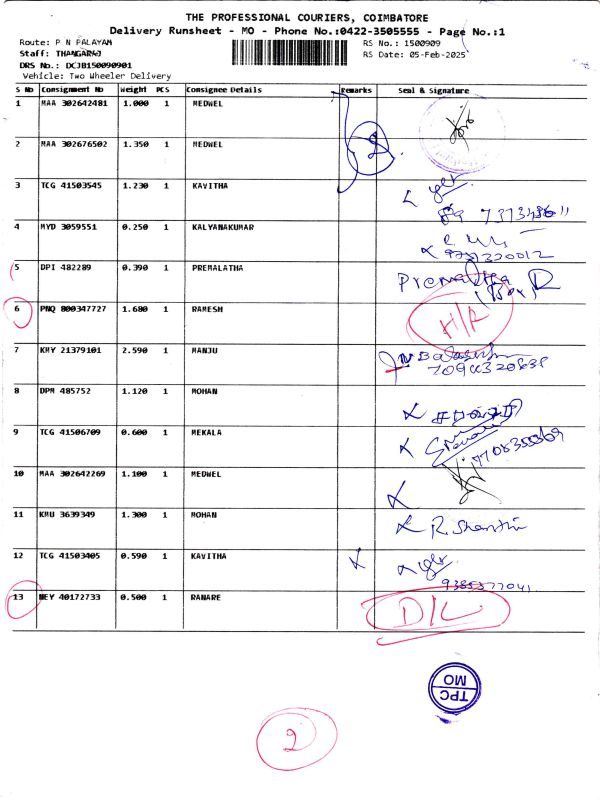 THE PROFESSIONAL COURIERS, COIMBATORE
Delivery Runsheet - MO - Phone No.:0422-3505555 - Page No.:1
Route: P N PALAYAM
Staff: THANGARAJ
DRS No.: DCJB150090901
Vehicle: Two Wheeler Delivery
RS No.: 1500909
RS Date: 05-Feb-2025
S No Consignment No Weight PCS Consignee Details Remarks Seal & Signature
1 MAA 302642481 1.000 1 MEDWEL
2 MAA 302676502 1.350 1 MEDWEL
3 TCG 41503545 1.230 1 KAVITHA
4 MYD 3059551 0.250 1 KALYANAKUMAR
5 DPI 482289 0.390 1 PREMALATHA Premalatha
(Box)
6 PNQ 800347727 1.680 1 RAMESH
7 KMY 21379101 2.590 1 MANJU
8 DPM 485752 1.120 1 MOHAN
9 TCG 41506709 0.600 1 MEKALA
10 MAA 302642269 1.100 1 MEDWEL
11 KMU 3639349 1.300 1 MOHAN R. Shanthi
12 TCG 41503405 0.590 1 KAVITHA
9385377041
13 NEY 40172733 0.500 1 RANARE D/L
TPC
MO
2